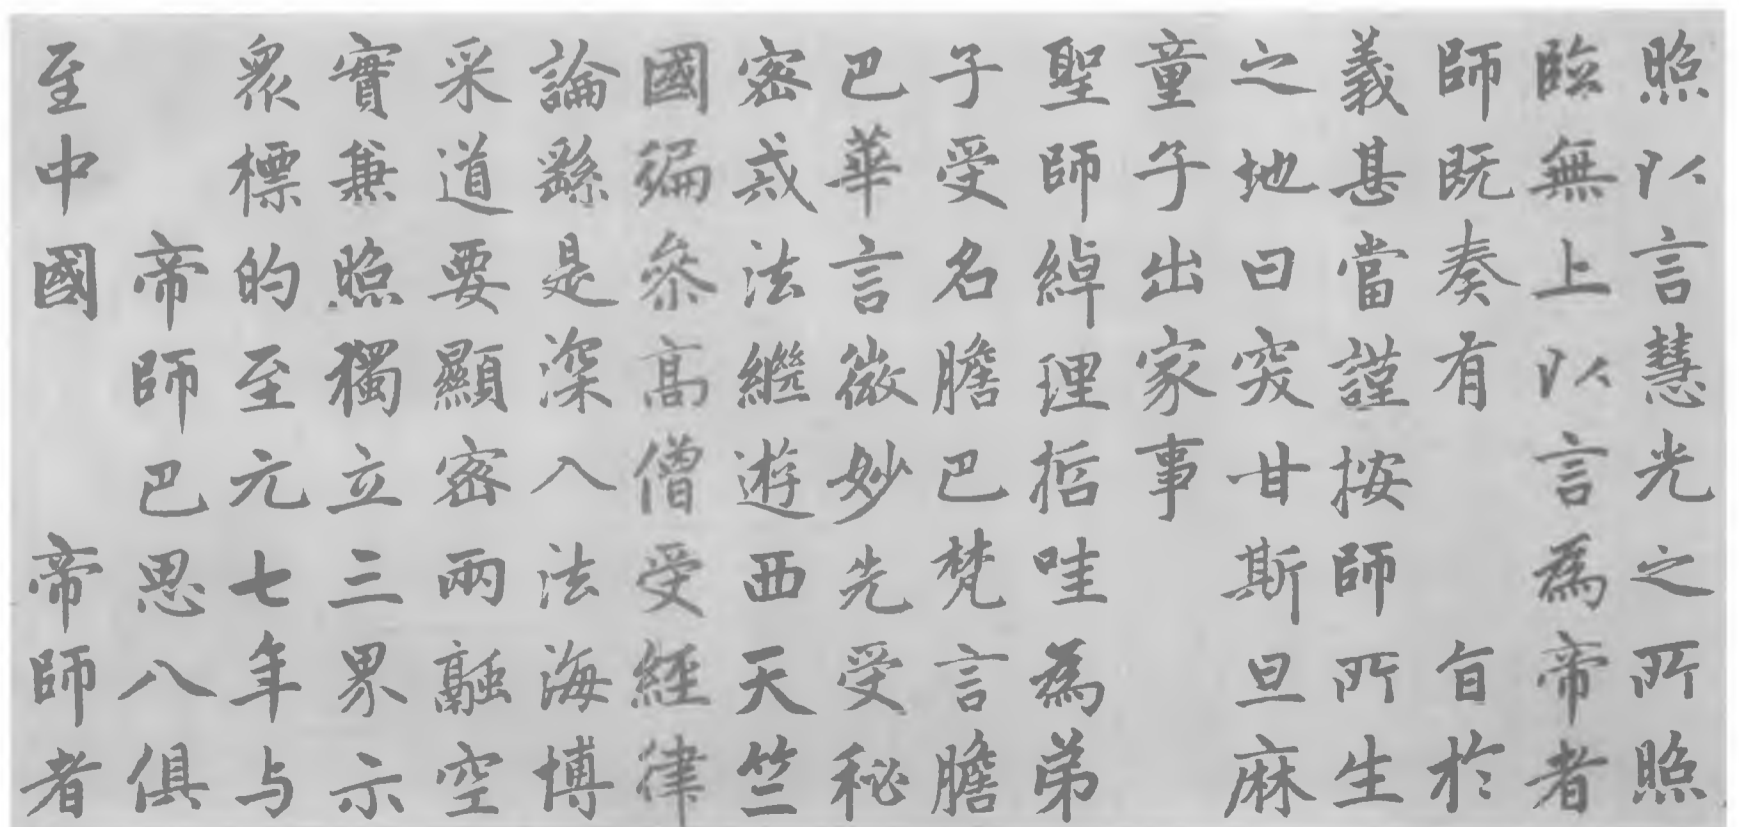 照以言慧光之所照
臨無上以言為帝者
師既奏有旨於
義甚當謹按師所生
之地曰突甘斯旦麻
童子出家事
聖師綽理哲哇為弟
子受名膽巴梵言膽
巴華言微妙先受秘
密戒法繼遊西天竺
國徧參高僧受經律
論繇是深入法海博
采道要顯密兩融空
實兼照獨立三界示
衆標的至元七年与
帝師巴思八俱
至中國帝師者